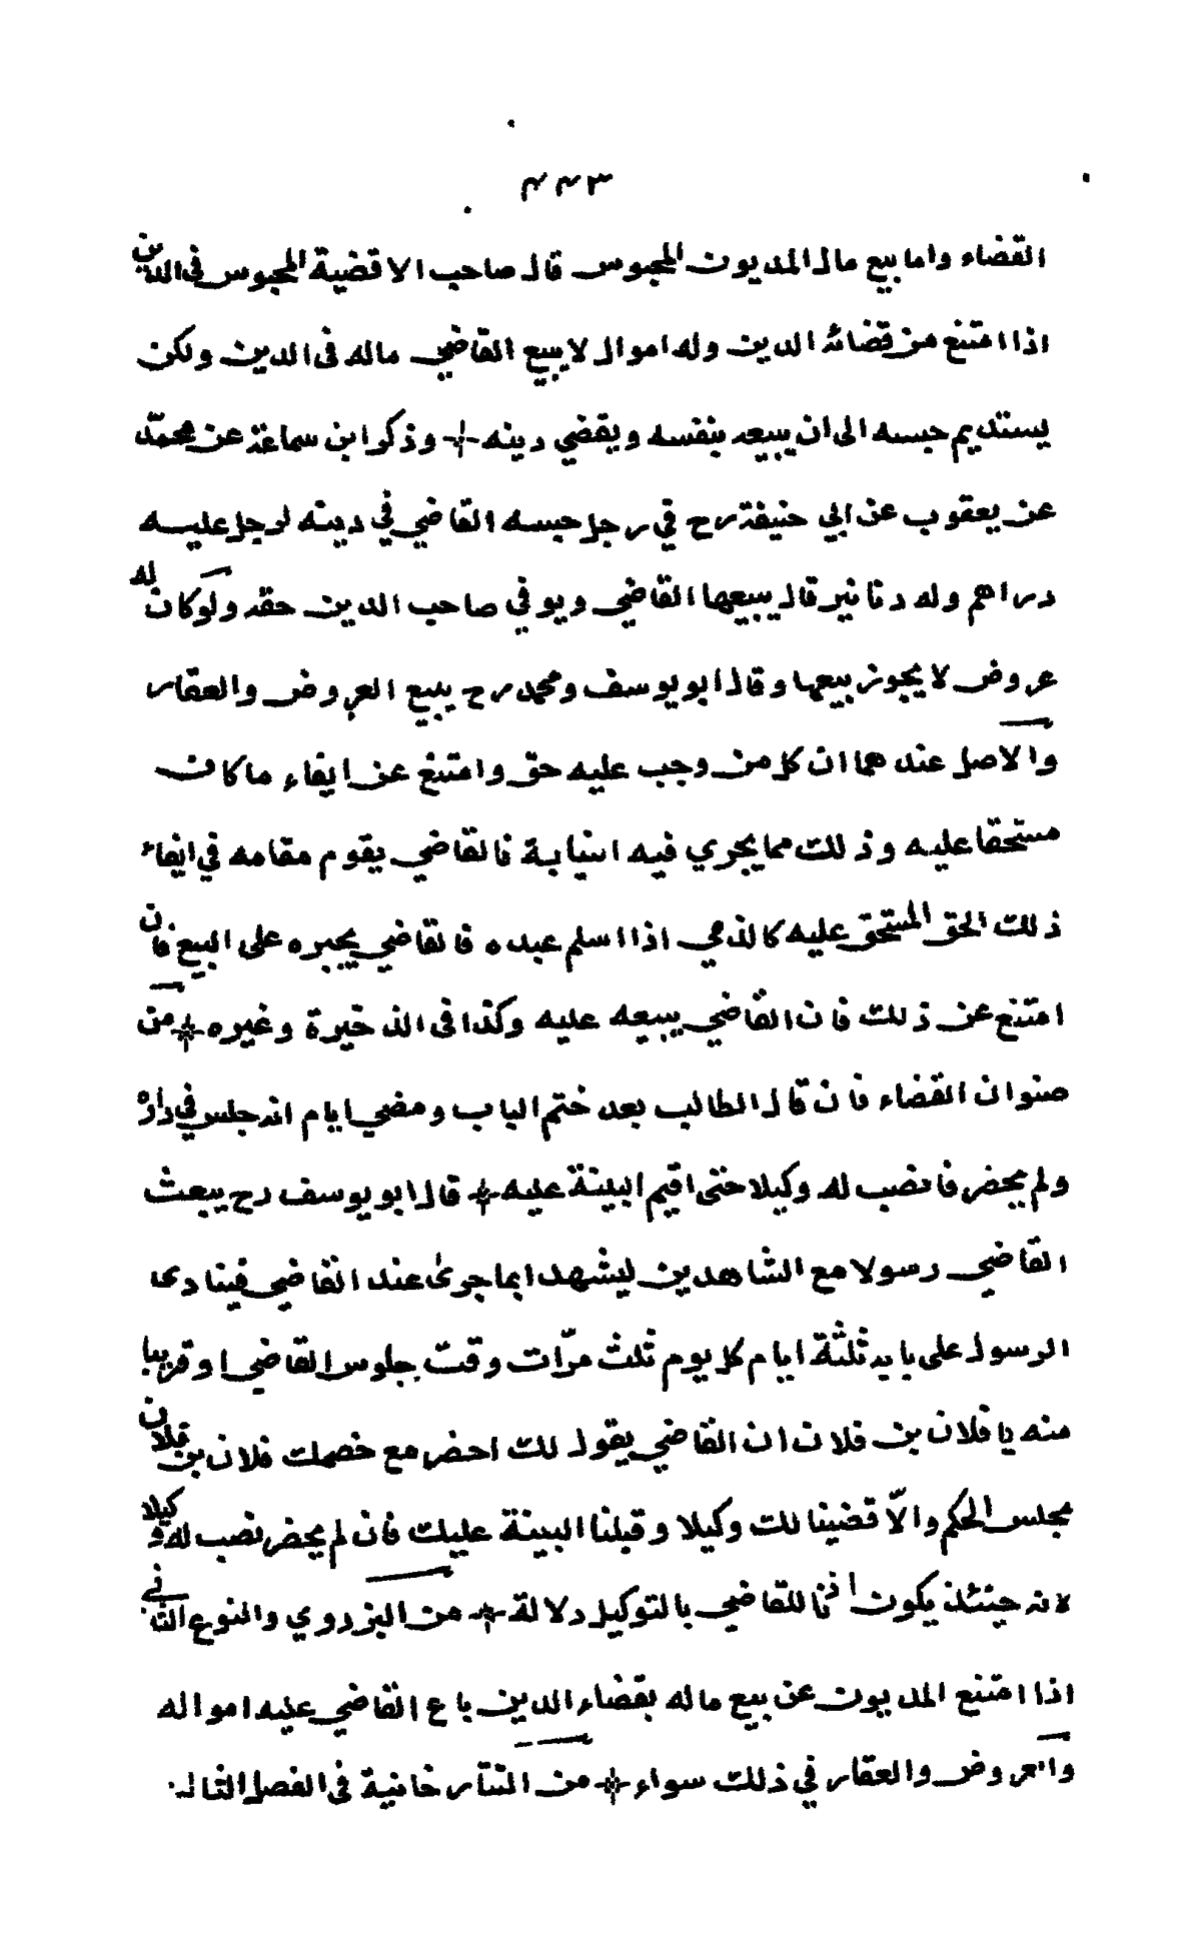 ٤٤٣
القضاء واما بيع مال المديون المحبوس قال صاحب الاقضية المحبوس فى الدين
اذا امتنع من قضائه الدين وله اموال لا يبيع القاضي ماله فى الدين ولكن
يستديم حبسه الى ان يبيعه بنفسه ويقضي دينه وذكر ابن سماعة عن محمّد
عن يعقوب عن ابي حنيفة رح في رجل حبسه القاضي في دينه لرجل عليه
دراهم وله دنانير قال يبيعها القاضي ويوفي صاحب الدين حقه ولو كان له
عروض لا يجوز بيعها وقال ابو يوسف ومحمد رح يبيع العروض والعقار
والاصل عندهما ان كل من وجب عليه حق وامتنع عن ايفاء ما كان
مستحقا عليه وذلك مما يجري فيه النيابة فالقاضي يقوم مقامه في ايفاء
ذلك الحق المستحق عليه كالذمي اذا اسلم عبده فالقاضي يجبره على البيع فان
امتنع عن ذلك فان القاضي يبيعه عليه وكذا فى الذخيرة وغيره من
صنوان القضاء فان قال الطالب بعد ختم الباب ومضي ايام انه جلس في داره
ولم يحضر فانصب له وكيلا حتى اقيم البينة عليه قال ابو يوسف رح يبعث
القاضي رسولا مع الشاهدين ليشهدا بما جرى عند القاضي فينادى
الرسول على بابه ثلثة ايام كل يوم ثلث مرّات وقت جلوس القاضي او قريبا
منه يا فلان بن فلان ان القاضي يقول لك احضر مع خصمك فلان بن فلان
مجلس الحكم والّا قضينا لك وكيلا وقبلنا البينة عليك فان لم يحضر نصب له وكيلا
لانه حينئذ يكون اذنا للقاضي بالتوكيل دلالة من البزدوي والنوع الثاني
اذا امتنع المديون عن بيع ماله بقضاء الدين باع القاضي عليه امواله
والعروض والعقار في ذلك سواء من التتارخانية فى الفصل الثالث